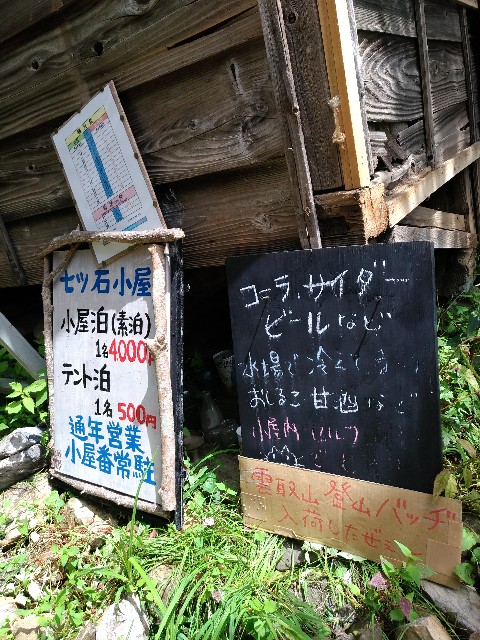 七ツ石小屋
小屋泊(素泊)
1名4000円
テント泊
1名500円
通年営業
小屋番常駐
コーラ、サイダー
ビールなど
水場で冷えてます
おしるこ 甘酒など
小屋内
雲取山登山バッヂ
入荷したぜぇ